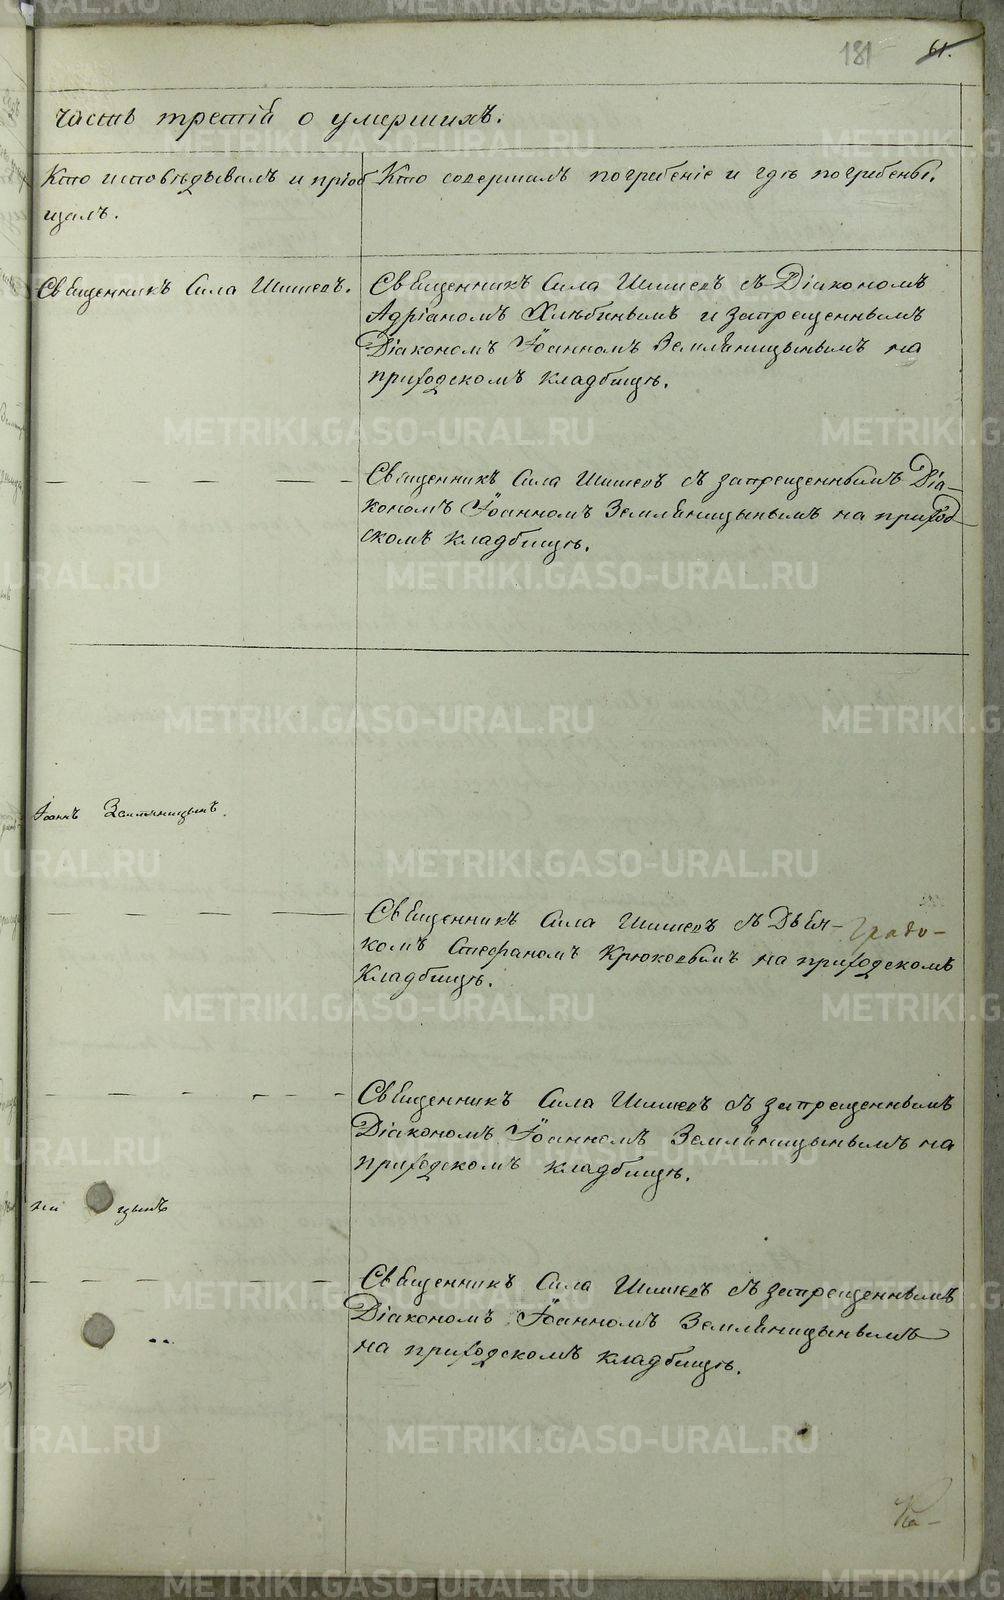 181 61.
часть третій о умершихъ.
Кто исповѣдывалъ и пріоб
щалъ.
Кто совершалъ погребеніе и гдѣ погребены.
Священникъ Сила Шишевъ.
Священникъ Сила Шишевъ съ Діакономъ
Адріаномъ Хлѣбинымъ и запрещеннымъ
Діакономъ Іоанномъ Земляницынымъ на
приходскомъ кладбищѣ.
Священникъ Сила Шишевъ съ запрещеннымъ Діа-
кономъ Іоанномъ Земляницынымъ на приход
скомъ кладбищѣ.
Іоаннъ Земляницынъ.
Священникъ Сила Шишевъ съ Дьяч-
комъ Стефаномъ Крюковымъ на приходскомъ
кладбищѣ.
Градо-
Священникъ Сила Шишевъ съ запрещеннымъ
Діакономъ Іоанномъ Земляницынымъ на
приходскомъ кладбищѣ.
цынъ
Священникъ Сила Шишевъ съ запрещеннымъ
Діакономъ Іоанномъ Земляницынымъ
на приходскомъ кладбищѣ.
METRIKI.GASO-URAL.RU